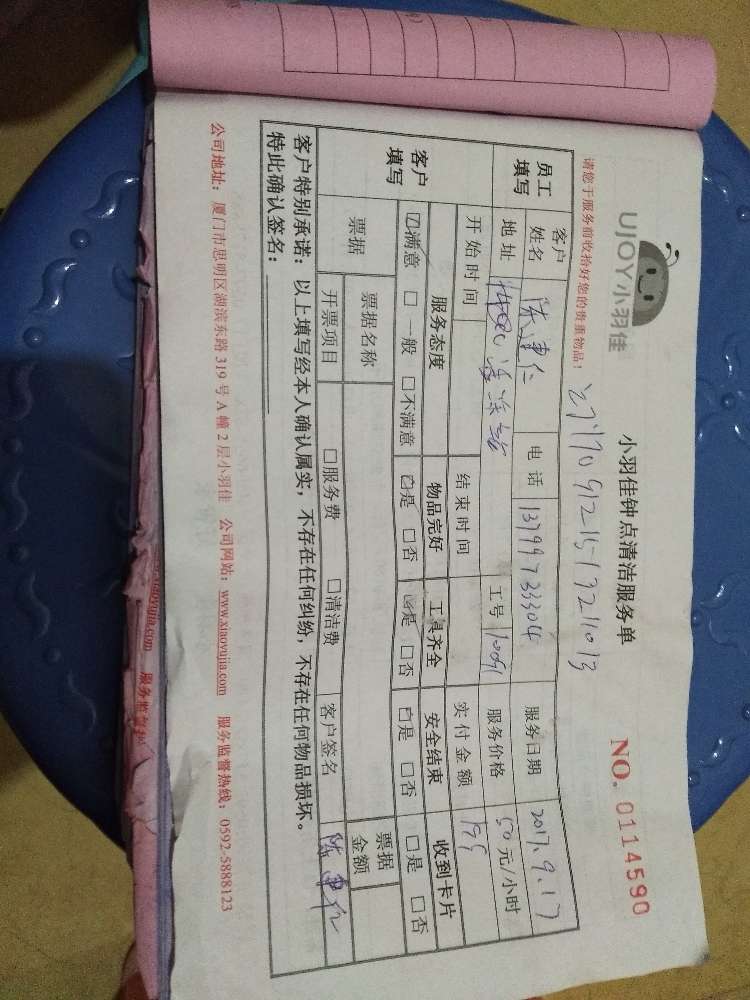 UJOY小羽佳
小羽佳钟点清洁服务单
NO. 0114590
请您于服务前收拾好您的贵重物品！
员工填写
客户姓名 陈建仁 电话 13799733304 服务日期 2017.9.17
地址 工号 服务价格 50元/小时
客户填写
开始时间 结束时间 实付金额 199
服务态度 物品完好 工具齐全 安全结束 收到卡片
☑满意 □一般 □不满意 ☑是 □否 ☑是 □否 ☑是 □否 □是 □否
票据 票据名称 票据金额
开票项目 □服务费 □清洁费 客户签名 陈建仁
客户特别承诺：以上填写经本人确认属实，不存在任何纠纷，不存在任何物品损坏。
特此确认签名：
公司地址：厦门市思明区湖滨东路319号A幢2层小羽佳 公司网站：www.xiaoyujia.com 服务监督热线：0592-5888123
aoyujia.com 服务监督